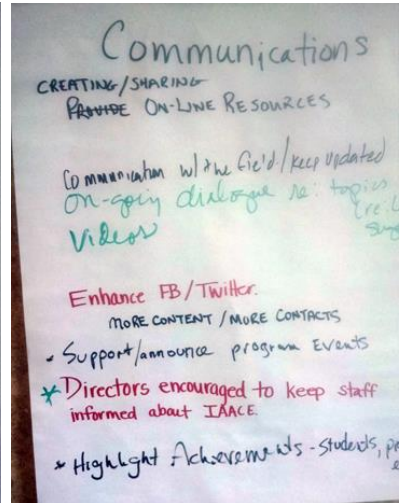 Communications
CREATING/SHARING
PROVIDE ON-LINE RESOURCES
Communication w/ the field/keep updated
On-going dialogue re: topics
Videos
Enhance FB/Twitter.
MORE CONTENT / MORE CONTACTS
Support/announce program Events
* Directors encouraged to keep staff
informed about IAACE.
* Highlight Achievements - Students,